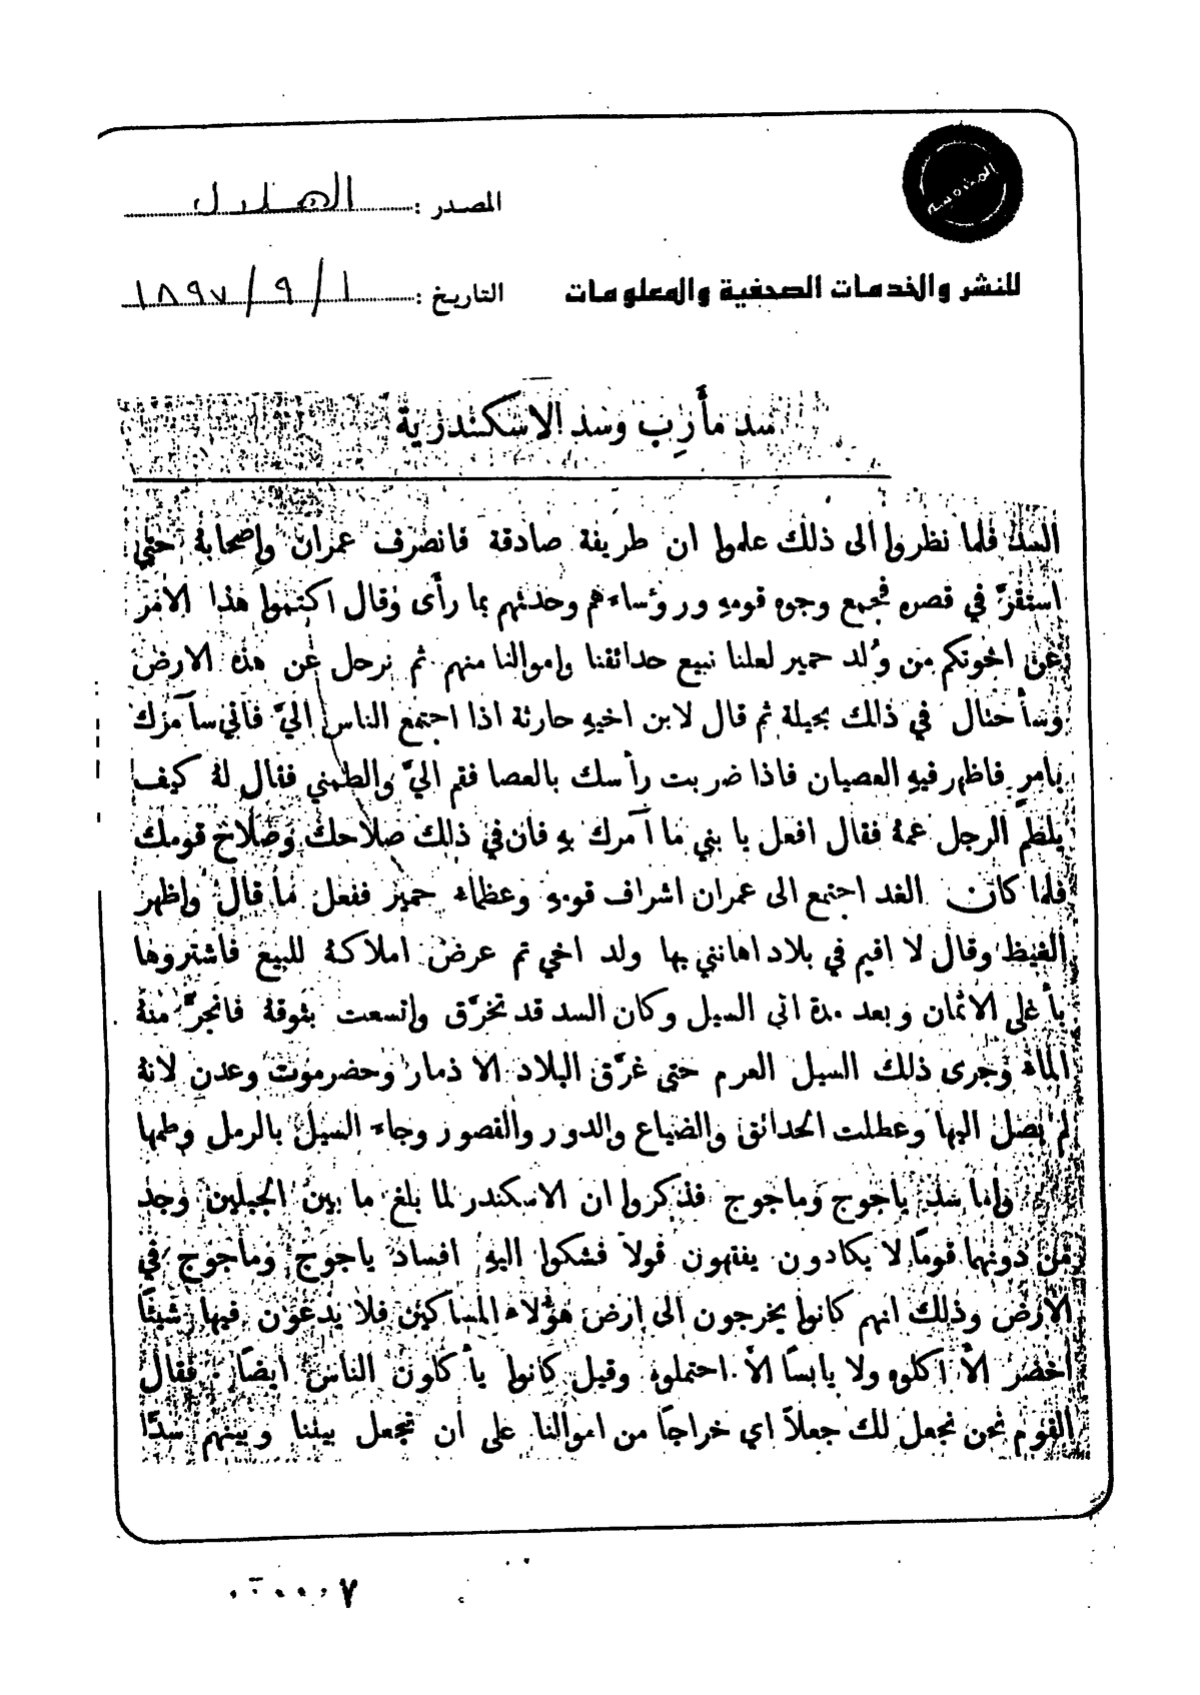 المصدر : الهلال
للنشر والخدمات الصحفية والمعلومات التاريخ : ١/٩/١٨٩٧
سد مأرب وسد الاسكندرية
السد فلما نظروا الى ذلك علموا ان طريفة صادقة فانصرف عمران واصحابهُ حتى
استقرَّ في قصره فجمع وجوه قومهِ ورؤساءهم وحدثهم بما رأى وقال اكتموا هذا الامر
عن اخوتكم من وُلد حمير لعلنا نبيع حدائقنا واموالنا منهم ثم نرحل عن هذه الارض
وسأحتال في ذالك بحيلة ثم قال لابن اخيهِ حارثة اذا اجتمع الناس اليَّ فاني سآمرك
بامرٍ فاظهر فيهِ العصيان فاذا ضربت رأسك بالعصا فقم اليَّ والطمني فقال لهُ كيف
يلطم الرجل عمهُ فقال افعل يا بني ما آمرك بهِ فان في ذلك صلاحك وصلاح قومك
فلما كان الغد اجتمع الى عمران اشراف قومهِ وعظماء حمير ففعل ما قال واظهر
الغيظ وقال لا اقيم في بلاد اهانني بها ولد اخي ثم عرض املاكهُ للبيع فاشتروها
بأغلى الاثمان وبعد مدة اتى السيل وكان السد قد تخرَّق واتسعت بثوقهُ فانجرَّ منهُ
الماء وجرى ذلك السيل العرم حتى غرَّق البلاد الا ذمار وحضرموت وعدن لانهُ
لم يصل اليها وعطلت الحدائق والضياع والدور والقصور وجاء السيل بالرمل وطمها
واما سد ياجوج وماجوج فذكروا ان الاسكندر لما بلغ ما بين الجبلين وجد
من دونهما قومًا لا يكادون يفقهون قولاً فشكوا اليهِ افساد ياجوج وماجوج في
الارض وذلك انهم كانوا يخرجون الى ارض هؤلاء المساكين فلا يدعون فيها شيئًا
اخضر الاَّ اكلوه ولا يابسًا الاَّ احتملوه وقيل كانوا يأكلون الناس ايضًا . فقال
القوم نحن نجعل لك جعلاً اي خراجًا من اموالنا على ان تجعل بيننا وبينهم سدًّا